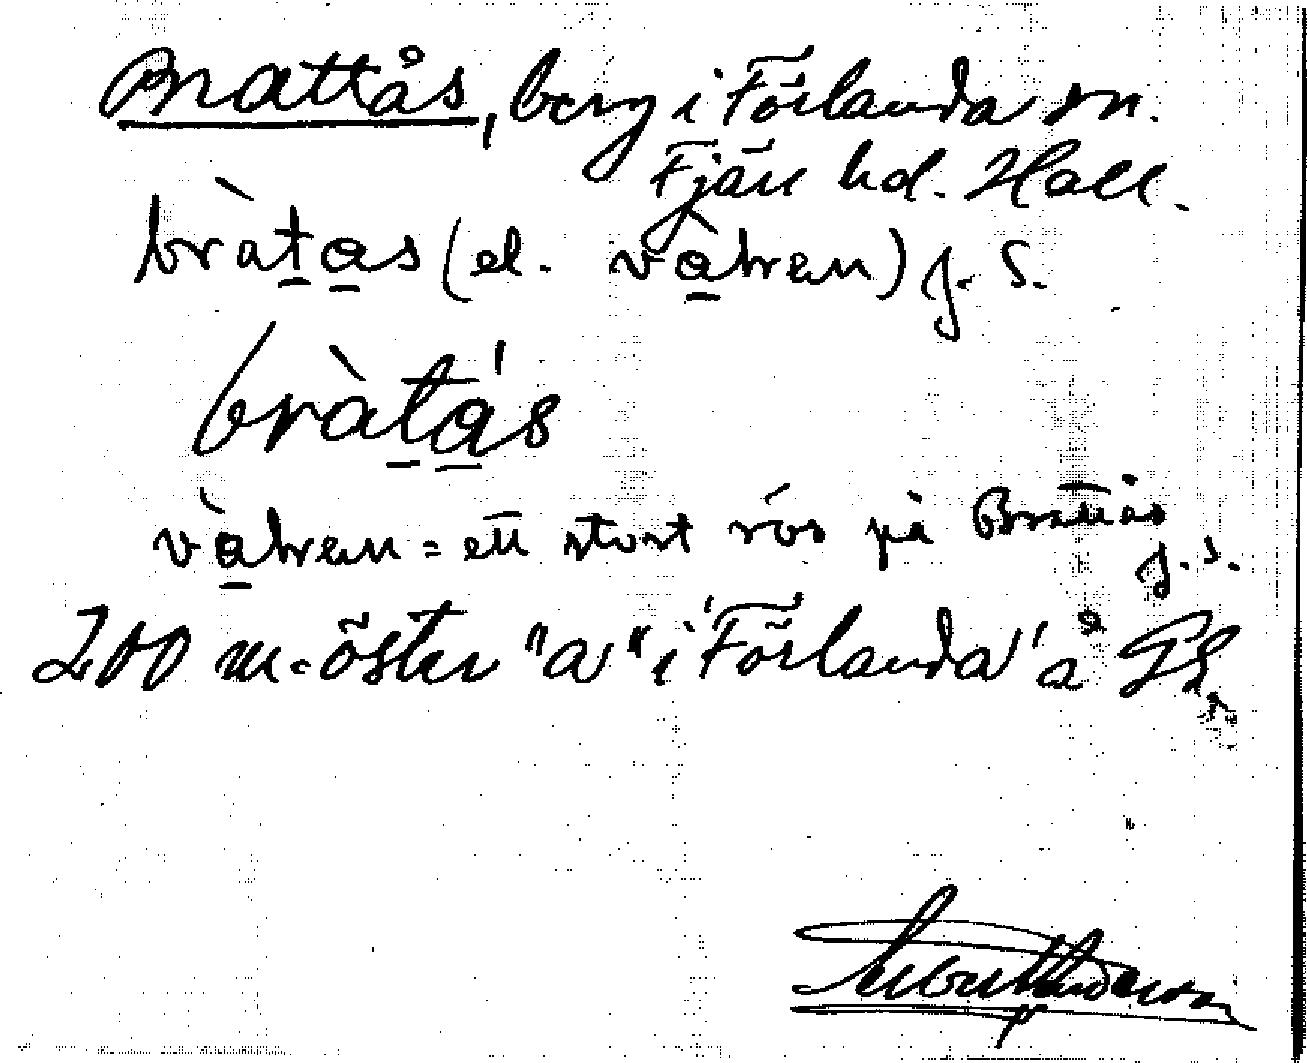 Brattås, berg i Förlanda sn.
Fjäre hd. Hall.
bràt̲a̲s (el. và̲hren) J. S.
bràt̲á̲s
và̲hren = ett stort rös på Brattås
J. S.
200 m. öster "a" i 'Förlanda' å